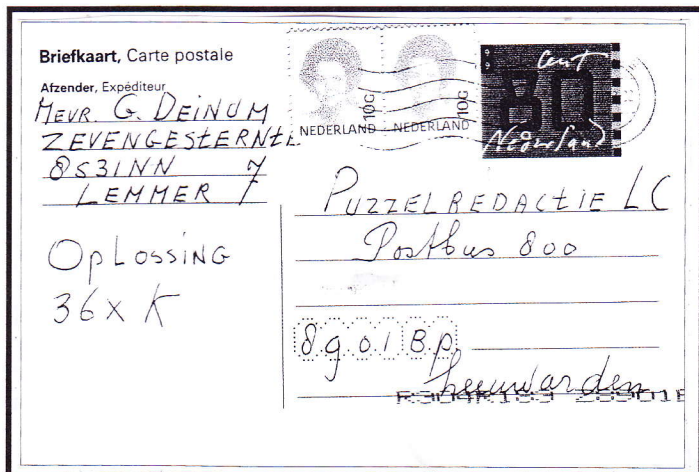 Briefkaart, Carte postale
Afzender, Expéditeur
MEVR. G. DEINUM
ZEVENGESTERNTE
8531NN 7
LEMMER
OPLOSSING
36X K
10G
NEDERLAND
10G
NEDERLAND
99
cent
80
Nederland
PUZZELREDACTIE LC
Postbus 800
8901BP
Leeuwarden